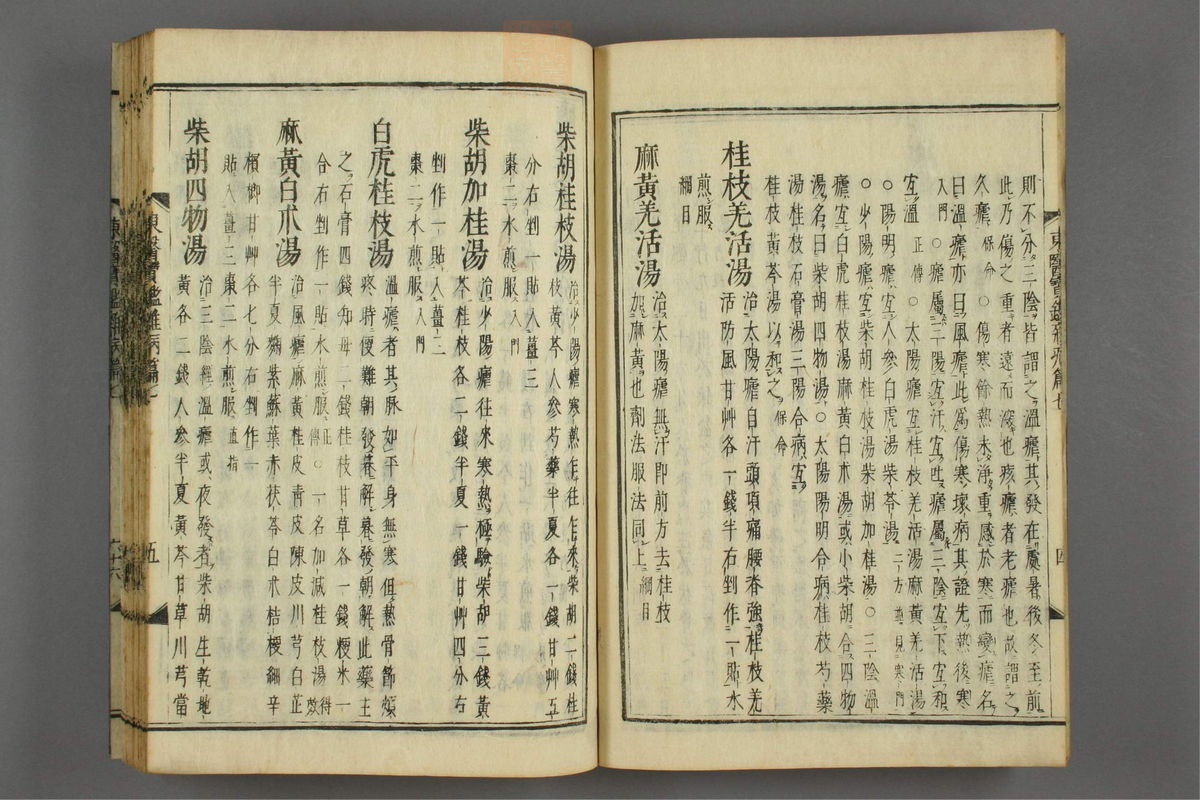 則不分三陰皆謂之溫瘧其發在處暑後冬至前
此乃傷之重者遠而深也痎瘧者老瘧也故謂之
久瘧保命○傷寒餘熱未淨重感於寒而變瘧名
曰溫瘧亦曰風瘧此爲傷寒壞病其證先熱後寒
入門○瘧屬三陽宜汗宜吐瘧屬三陰宜下宜和
宜溫正傳○太陽瘧宜桂枝羌活湯麻黃羌活湯
○陽明瘧宜人參白虎湯柴苓湯二方並見寒門
○少陽瘧宜柴胡桂枝湯柴胡加桂湯○三陰溫
瘧宜白虎桂枝湯麻黃白朮湯或小柴胡合四物
湯名曰柴胡四物湯○太陽陽明合病桂枝芍藥
湯桂枝石膏湯三陽合病宜
桂枝黃芩湯以和之保命
桂枝羌活湯
治太陽瘧自汗頭項痛腰脊強桂枝羌
活防風甘艸各一錢半右剉作一貼水
煎服
綱目
麻黃羌活湯
治太陽瘧無汗即前方去桂枝
加麻黃也劑法服法同上綱目
東醫寶鑑雜病篇七
四
柴胡桂枝湯
治少陽瘧寒熱乍往乍來柴胡二錢桂
枝黃芩人參芍藥半夏各一錢甘艸五
分右剉一貼入薑三
棗二水煎服入門
柴胡加桂湯
治少陽瘧往來寒熱極驗柴胡三錢黃
芩桂枝各二錢半夏一錢甘艸四分右
剉作一貼入薑三
棗二水煎服入門
白虎桂枝湯
溫瘧者其脉如平身無寒但熱骨節煩
疼時便難朝發暮解暮發朝解此藥主
之石膏四錢知母二錢桂枝甘草各一錢粳米一
合右剉作一貼水煎服正傳○一名加減桂枝湯得效
麻黃白朮湯
治風瘧麻黃桂皮靑皮陳皮川芎白芷
半夏麴紫蘇葉赤茯苓白朮桔梗細辛
檳榔甘艸各七分右剉作一
貼入薑三棗二水煎服直指
柴胡四物湯
治三陰經溫瘧或夜發者柴胡生乾地
黃各二錢人參半夏黃芩甘草川芎當
東醫寶鑑雜病篇七
五